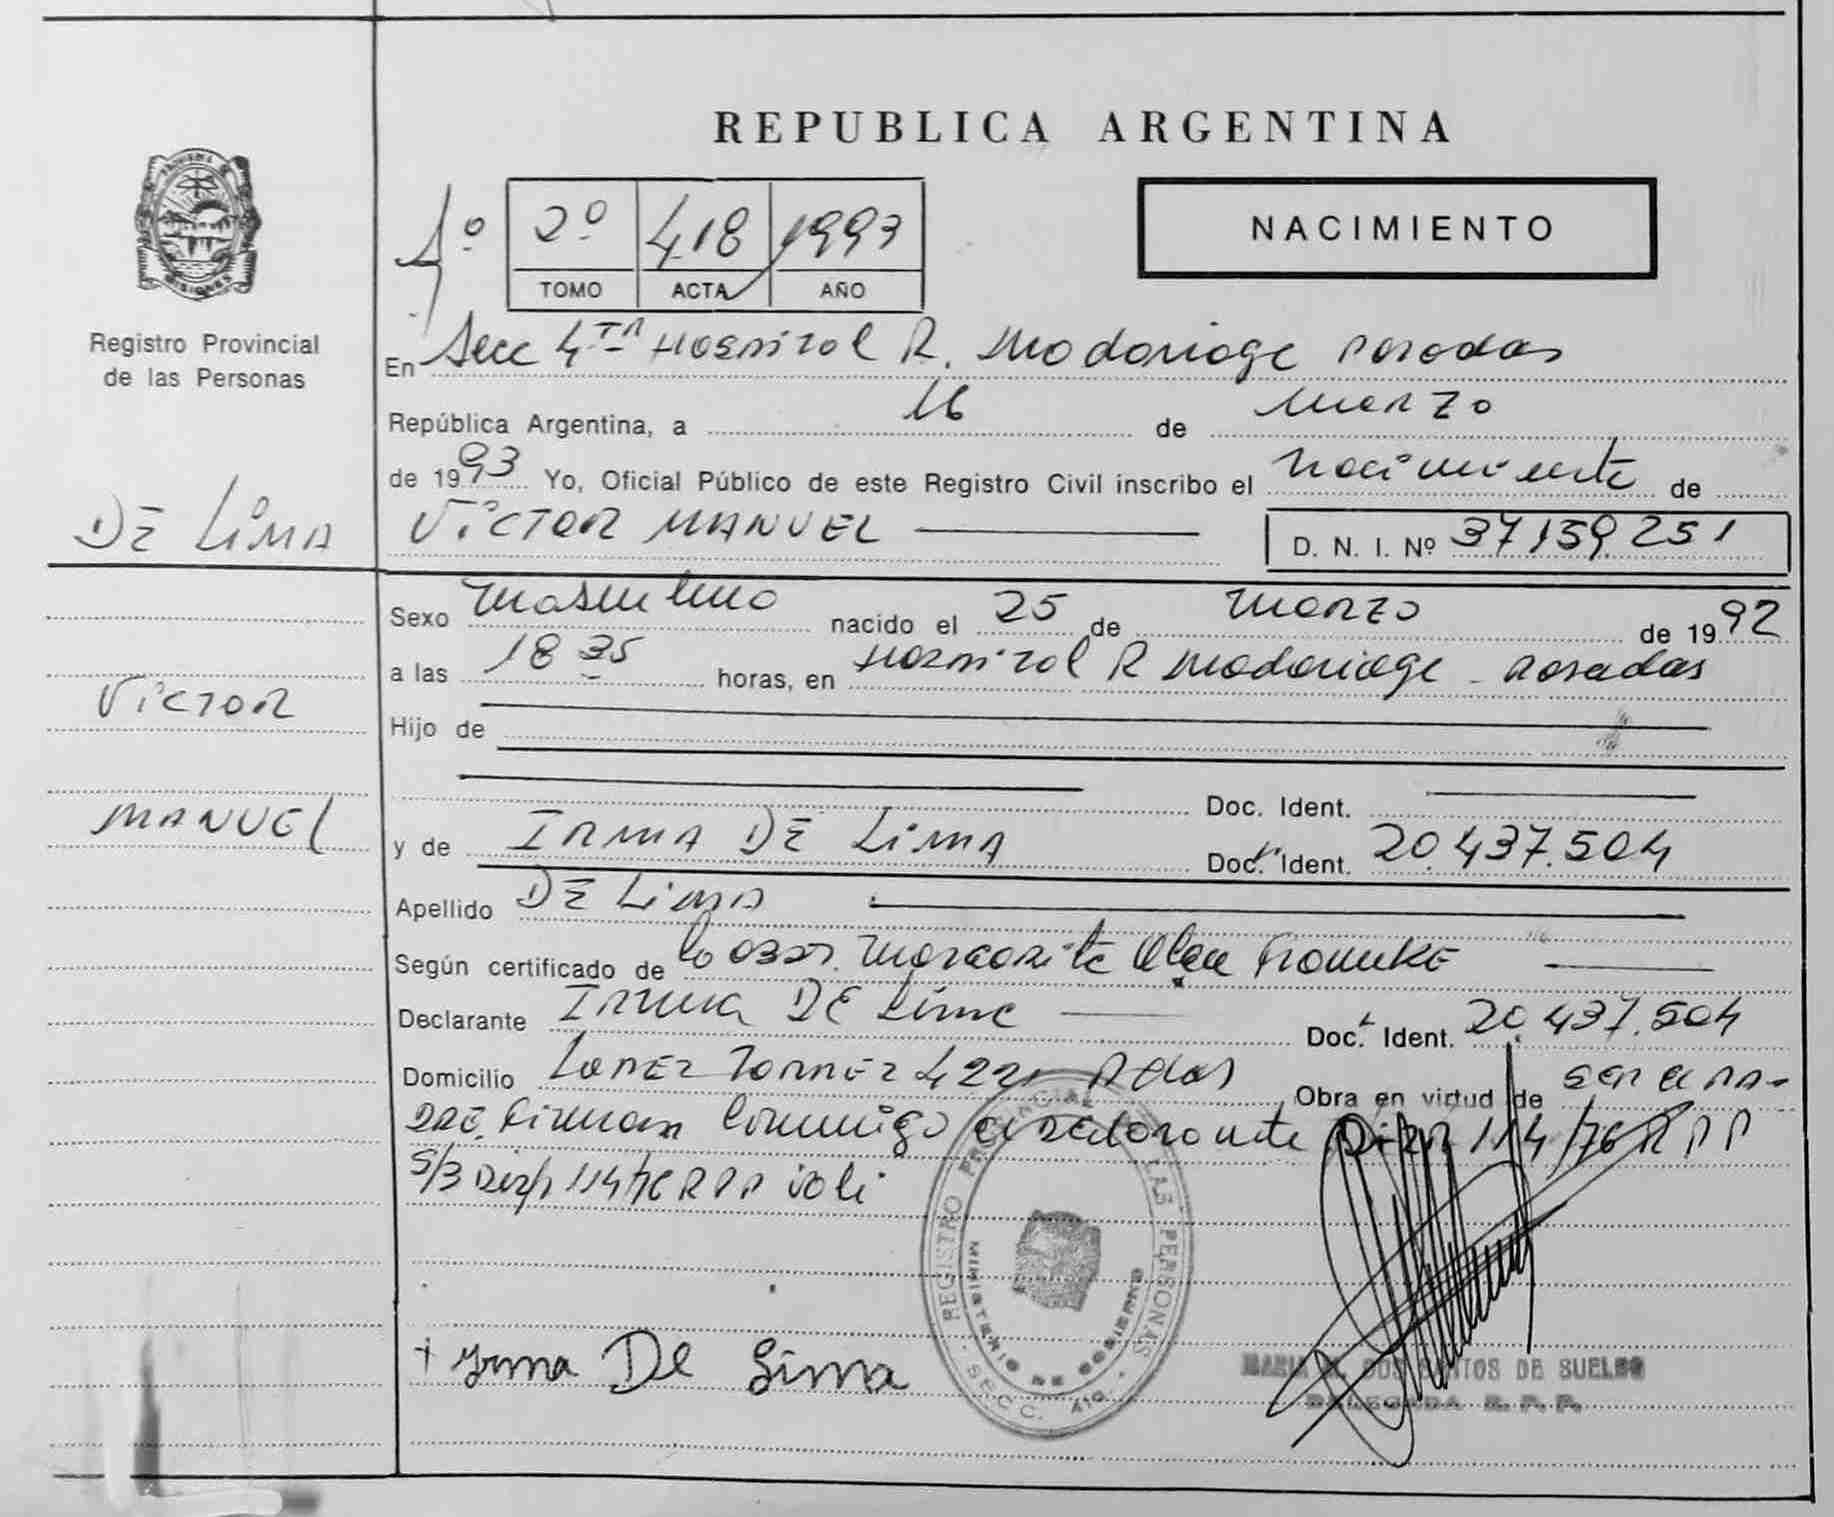 REPUBLICA ARGENTINA
1º 2º 418 1993
TOMO ACTA AÑO
NACIMIENTO
MISIONES
Registro Provincial
de las Personas
En Secc 4TA Hospital R. Madariaga Posadas
República Argentina, a 16 de Marzo
de 1993 Yo, Oficial Público de este Registro Civil inscribo el nacimiento de
DE LIMA
VICTOR MANUEL
D. N. I. Nº 37.159.251
Sexo Masculino nacido el 25 de Marzo de 1992
a las 18 35 horas, en Hospital R Madariaga - Posadas
VICTOR
Hijo de
Doc. Ident.
MANUEL
y de IRMA DE LIMA Doc. Ident. 20.437.504
Apellido DE LIMA
Según certificado de la Margarita Olga
Declarante Irma DE Lima Doc. Ident. 20.437.504
Domicilio LOPEZ TORRES 4221 Pdas Obra en virtud de ser la ma-
dre. Firman conmigo declarante Disp 114/76 R P P
S/B Disp 114/76 R P P vale
REGISTRO PROVINCIAL DE LAS PERSONAS
MINISTERIO DE GOBIERNO
SECC. 4ta.
+ Irma De Lima
MARIA M. DOS SANTOS DE SUELDO
DELEGADA R. P. P.